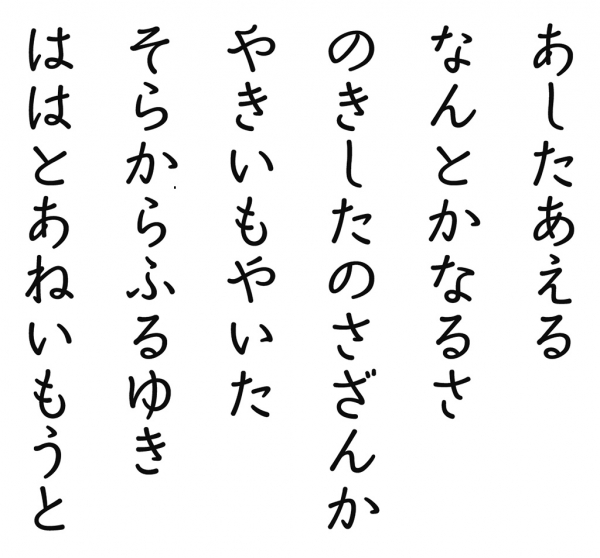 あしたあえる
なんとかなるさ
のきしたのさざんか
やきいもやいた
そらからふるゆき
ははとあねいもうと